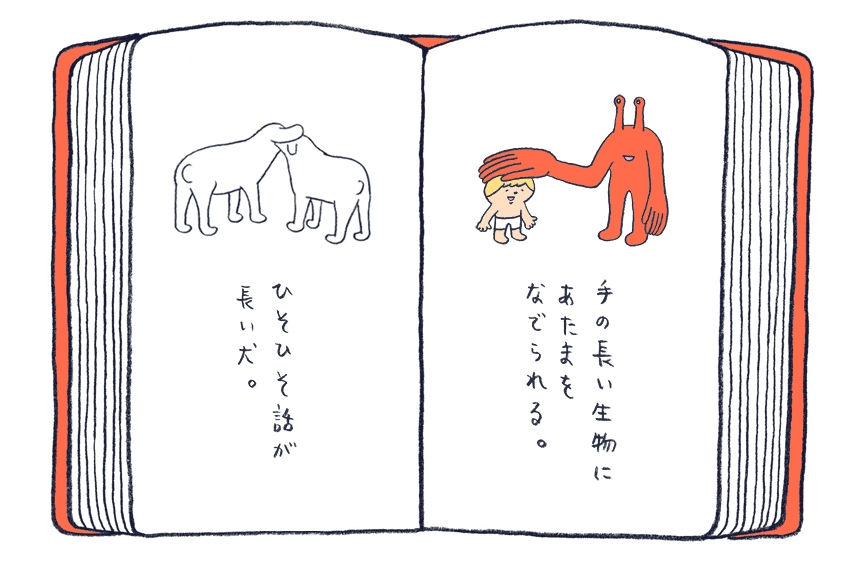 手の長い生物に
あたまを
なでられる。
ひそひそ話が
長い犬。